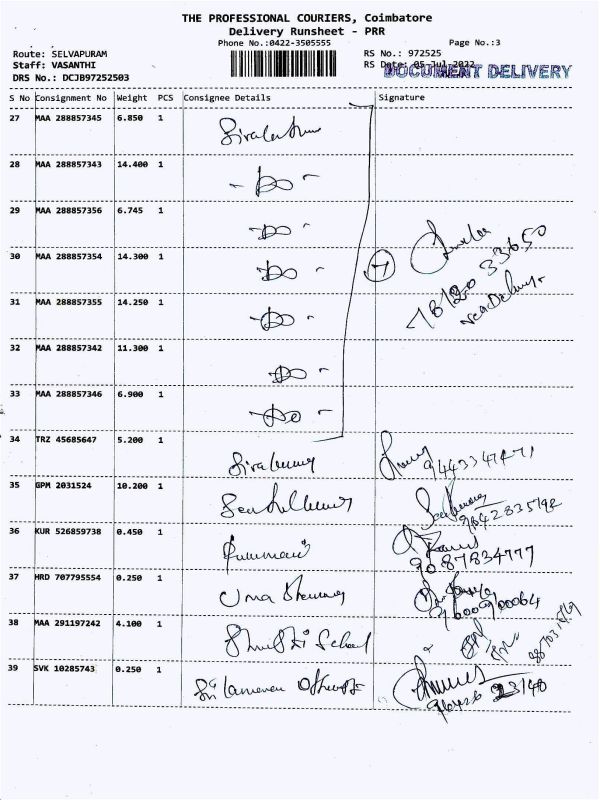 THE PROFESSIONAL COURIERS, Coimbatore
Delivery Runsheet - PRR
Phone No.:0422-3505555
Page No.:3
Route: SELVAPURAM
RS No.: 972525
Staff: VASANTHI
RS Date: 05-Jul-2022
DOCUMENT DELIVERY
DRS No.: DCJB97252503
S No Consignment No Weight PCS Consignee Details Signature
27 MAA 288857345 6.850 1
28 MAA 288857343 14.400 1 - Do -
29 MAA 288857356 6.745 1 - Do -
30 MAA 288857354 14.300 1 - Do -
31 MAA 288857355 14.250 1 - Do -
32 MAA 288857342 11.300 1 - Do -
33 MAA 288857346 6.900 1 - Do -
7
34 TRZ 45685647 5.200 1
35 GPM 2031524 10.200 1 9842835792
36 KUR 526859738 0.450 1 9087834777
37 HRD 707795554 0.250 1 Uma 9600900064
38 MAA 291197242 4.100 1 School
39 SVK 10285743 0.250 1